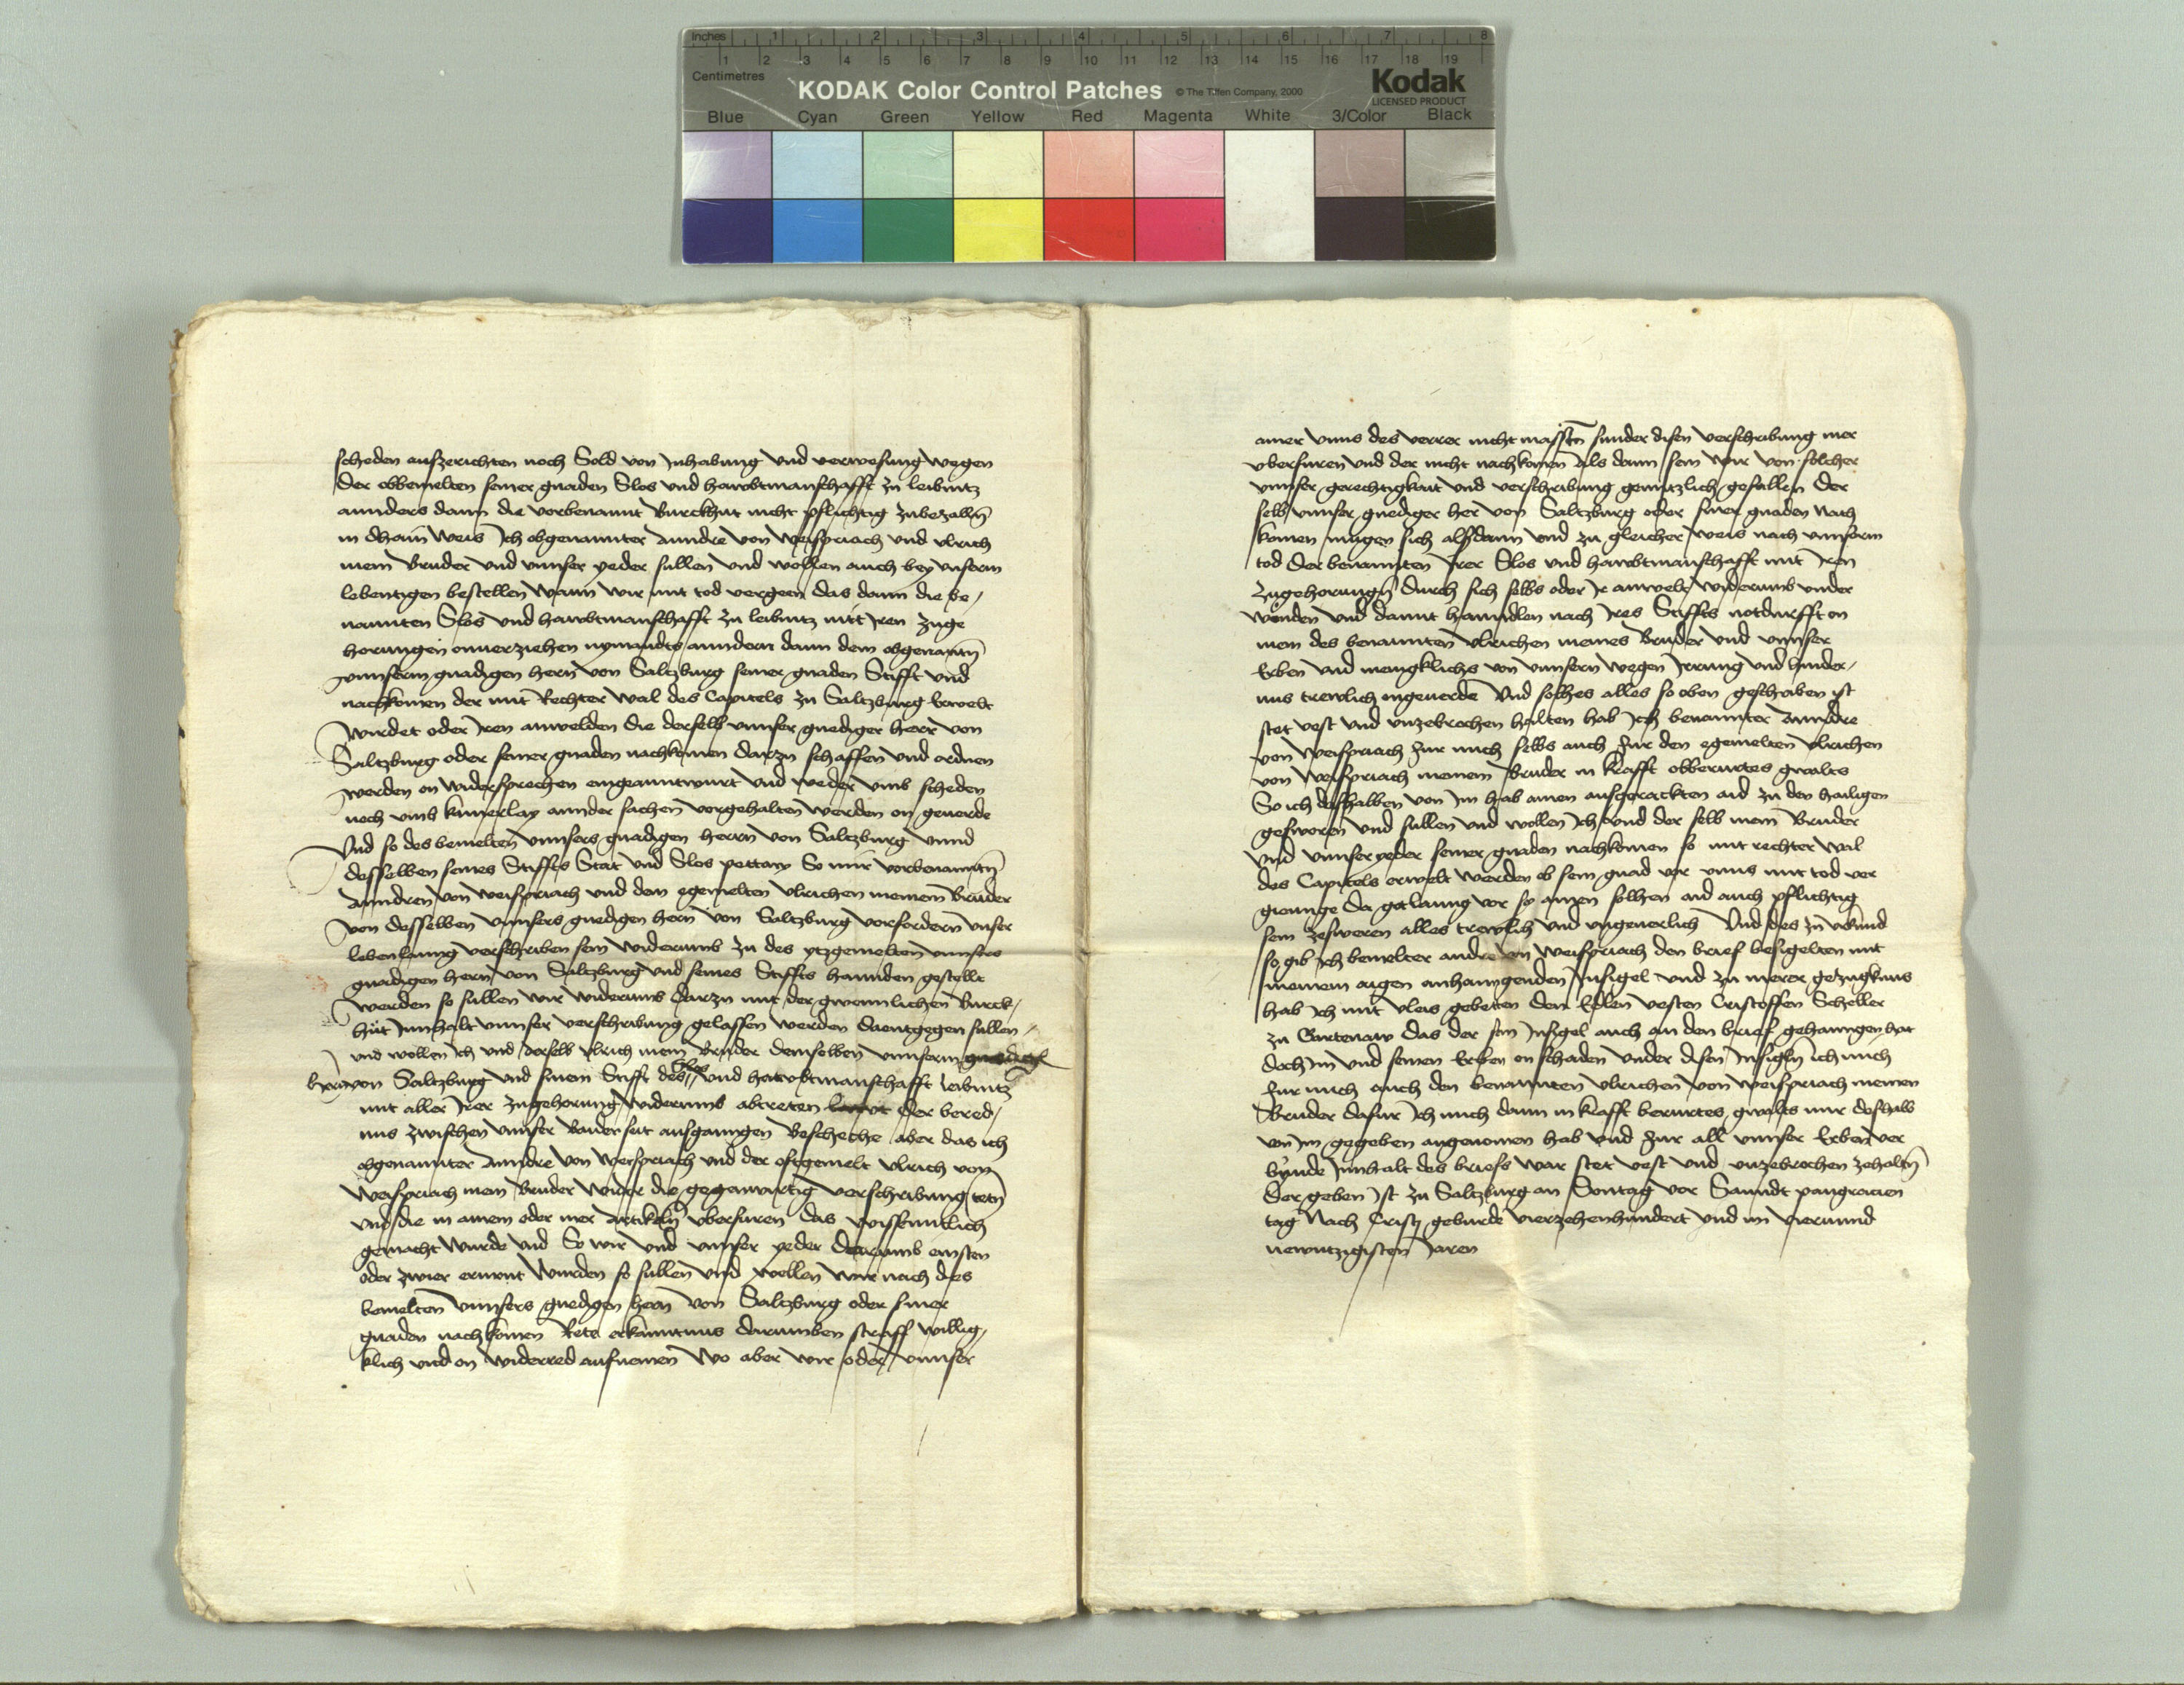 Inches 1 2 3 4 5 6 7 8
1 2 3 4 5 6 7 8 9 10 11 12 13 14 15 16 17 18 19
Centimetres
KODAK Color Control Patches © The Tiffen Company, 2000 Kodak
LICENSED PRODUCT
Blue Cyan Green Yellow Red Magenta White 3/Color Black
scheden aufzerichten noch Sold von Inhabung und verwesung wegen
der obbemelten seiner gnaden Slos und hawbtmanschafft zu leibnitz
annders dann die vorbenannt Burckhut nicht pflichtig zubezallen
in dhain weis Ich obgenannter Anndre von Weispriach und Ulrich
mein Bruder und unnser yeder sullen und wollen auch bey unserm
lebentigen bestellen wann wir mit tod vergeen das dann die be/
nannten Slos und hawbtmanschafft zu leibnitz mit Iren zuge
horungen onuerziehen nymandts anndern dann dem obgenantn
unnserm gnadigen hern von Saltzburg seiner gnaden Stifft und
nachkomen der mit Rechter wal des Capitels zu Saltzburg erwelt
wirdet oder Iren anwelden die derselb unnser gnediger herr von
Saltzburg oder seiner gnaden nachkomen darzu schaffen und ordnen
werden on widersprechen eingeanntwurt und weder umb scheden
noch umb kainerlay annder sachen vorgehalten werden on geuerde
Und so des bemelten unnsers gnadigen herrn von Saltzburg unnd
desselben seines Stiffts Stat und Slos pettaw So mir vorbenanntn
Anndren von Weispriach und dem egemelten Ulrichen meinem Bruder
von desselben unnsers gnedigen hern von Saltzburg vorfordern unser
lebenlanng verschriben sein widerumb zu des ytzgemelten unnsers
gnadigen hern von Saltzburg und seines Stiffts hannden gestellt
werden so sullen wir widerumb darzu mit der gwonnlichen Burck/
hut Innhalt unnser verschribung gelassen werden daentgegen sullen /
und wollen Ich und derselb Ulrich mein Bruder demselben unnserm gnedigen
hern von Saltzburg und seinem Stifft des Slos und hawbtmanschafft leibnitz
mit aller Irer zugehorung widerumb abtreten lawt der bered/
nus zwischen unnser baiderseit ausganngen Beschehe aber das ich
obgenannter Anndre von Weispriach und der oftgemelt Ulrich von
Weispriach mein Bruder wider die gegenwurtig verschribung tetn
und die in ainem oder mer Artikeln uberfuren das wissenntlich
gemacht wurde und So wir und unnser yeder darumb ainsten
oder zwier ermont wurden so sullen und wellen wir nach des
bemelten unnsers gnedigen hern von Saltzburg oder seiner
gnaden nachkomen Rete erkanntnus darumben straff willig/
klich und on widerred aufnemen Wo aber wir oder unnser
ainer unns des verrer nicht massten sunder disen verschribung mer
uberfuren und der nicht nachkomen als dann sein wir von solcher
unnser gerechtigkait und verschribung genntzlich gefallen Der
selb unnser gnediger her von Saltzburg oder seiner gnaden Nach
komen mugen sich alsdann und zu gleicher weis nach unnserm
tod der benannten Irer Slos und hawbtmanschafft mit Iren
zugehorungn durch sich selbs oder Ir anwelt widerumb under
wenden und damit hanndlen nach Ires Stiffts notdurfft on
mein des benannten Ulrichen meines Bruder und unnser
Erben und mengklichs von unnsern wegen Irrung und hinder/
nus trewlich ongeuerde Und solhes alles so oben geschriben ist
stet vest und unzebrochen halten hab Ich benannter Anndre
von Weispriach fur mich selbs auch fur den egemelten Ulrichen
von Weispriach meinem Bruder in krafft obberurtes gwalts
So ich deshalben von Im hab ainen aufgerackten aid zu den hailigen
gesworen und sullen und wollen Ich und der selb mein Bruder
und unnser yeder seiner gnaden nachkomen so mit rechter wal
des Capitels erwelt werden ob sein gnad vor unns mit tod ver
gieunge da got lanng vor sey ainen solhen aid auch pflichtig
sein zesweren alles trewlich und ungeuerlich Und des zu urkund
so gib Ich bemelter andre von Weispriach den brief besigelten mit
meinem aigen anhanngenden Insigel und zu merer getzugknus
hab Ich mit vleis gebeten den Edlen vesten Cristoffen Scheller
zu Gartenaw das der sein Insigel auch an den brief gehanngen hat
doch Im und seinen Erben on schaden under disen Insigln ich mich
fur mich auch den benannten Ulrichen von Weispriach meinen
Bruder dafur Ich mich dann in krafft berurtes gwalts mir deshalb
von Im gegeben angenomen hab und fur all unnser Erben ver
bynde Innhalt des briefs war stet vest und unzebrochen zehaltn
Der geben Ist zu Saltzburg an Sontag vor Sanndt pangracien
tag Nach Cristi geburde vierzehenhundert und im viernund
newntzigisten Jaren